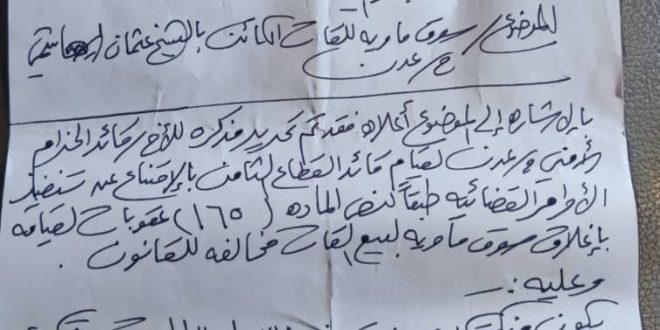 الموضوع / سوق ماويه للقات الكائن بالشيخ عثمان الهاشمي
م/ عدن
بالإشاره إلى الموضوع أعلاه فقد تم تحرير مذكره للأخ / قائد الحزام
الأمني م/ عدن لقيام قائد القطاع الثامن بالإمتناع عن تنفيذ
الأوامر القضائيه طبقاً لنص الماده (١٦٥) عقوبات لقيامه
بإغلاق سوق ماويه لبيع القات مخالفه للقانون .
وعليه :ـ